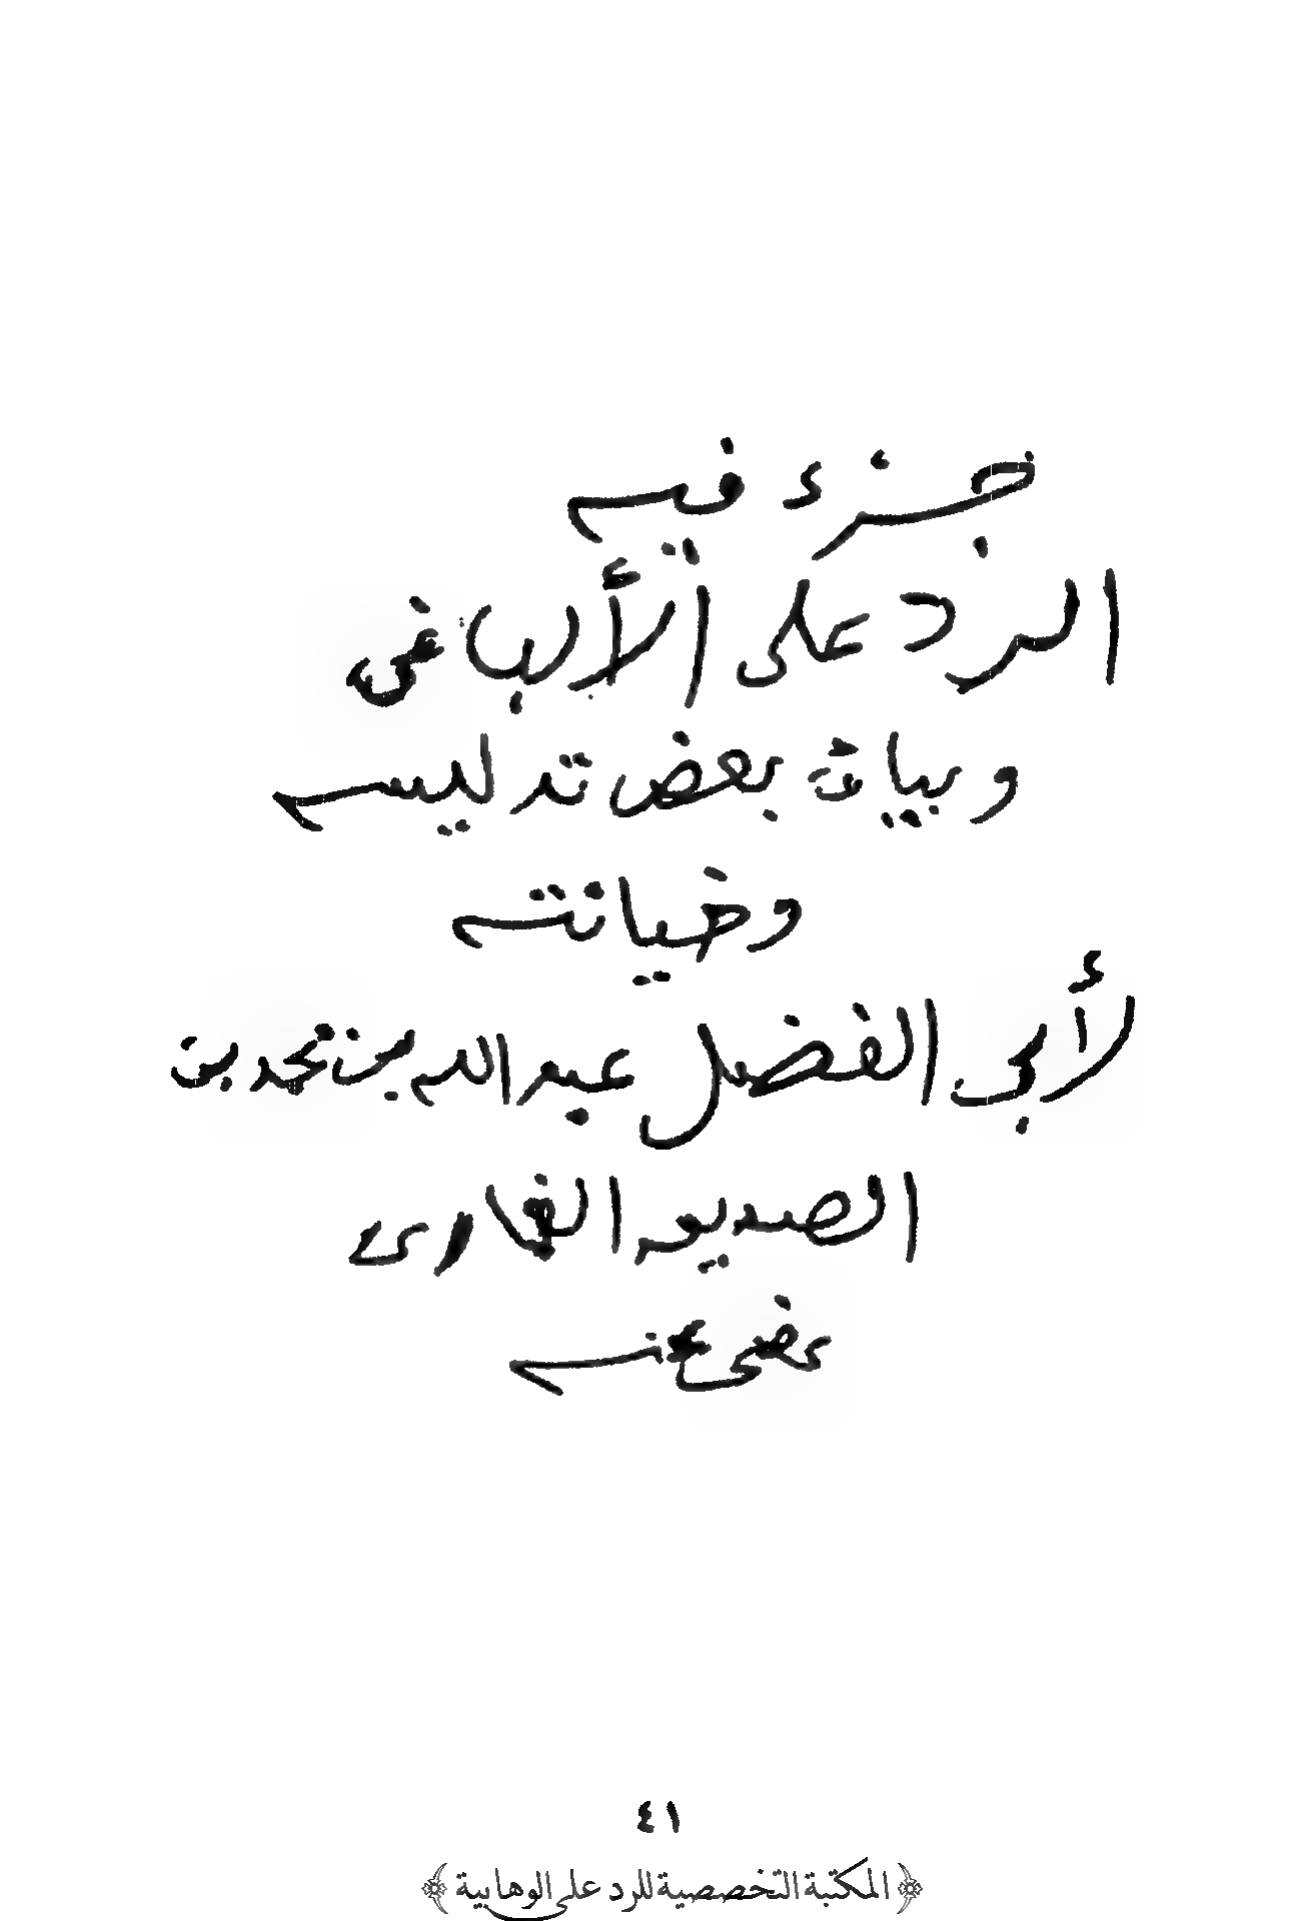 جزء فيه
الرد على الألبانى
وبيان بعض تدليسه
وخيانته
لأبى الفضل عبد الله بن محمد بن
الصديق الغمارى
عفى عنه
٤١
﴿ المكتبة التخصصية للرد على الوهابية ﴾